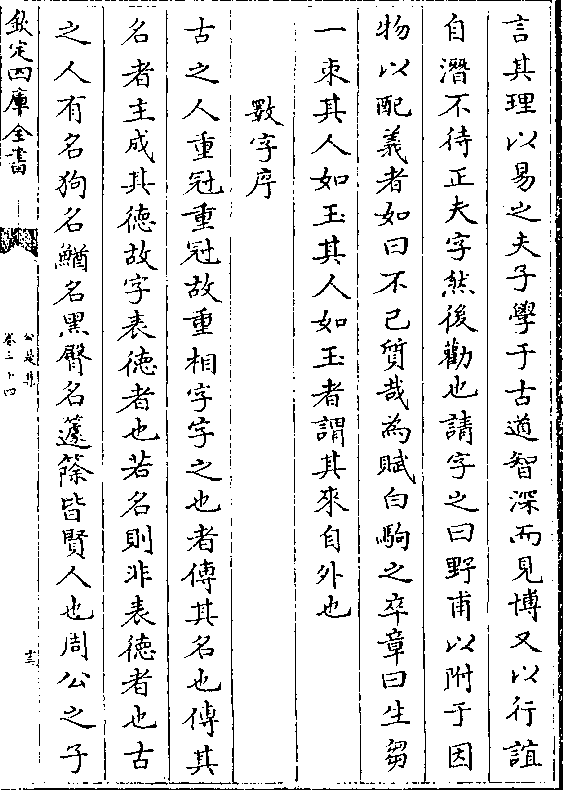 言其理以易之夫子學于古道智深而見博又以行誼
自潛不待正夫字然後勸也請字之曰野甫以附于因
物以配義者如曰不已質哉為賦白駒之卒章曰生芻
一束其人如玉其人如玉者謂其來自外也
數字序
古之人重冠重冠故重相字字之也者傅其名也傅其
名者主成其徳故字表徳者也若名則非表徳者也古
之人有名狗名鰌名黑臀名籧篨皆賢人也周公之子
欽定四庫全書
公是集
卷三十四
十三